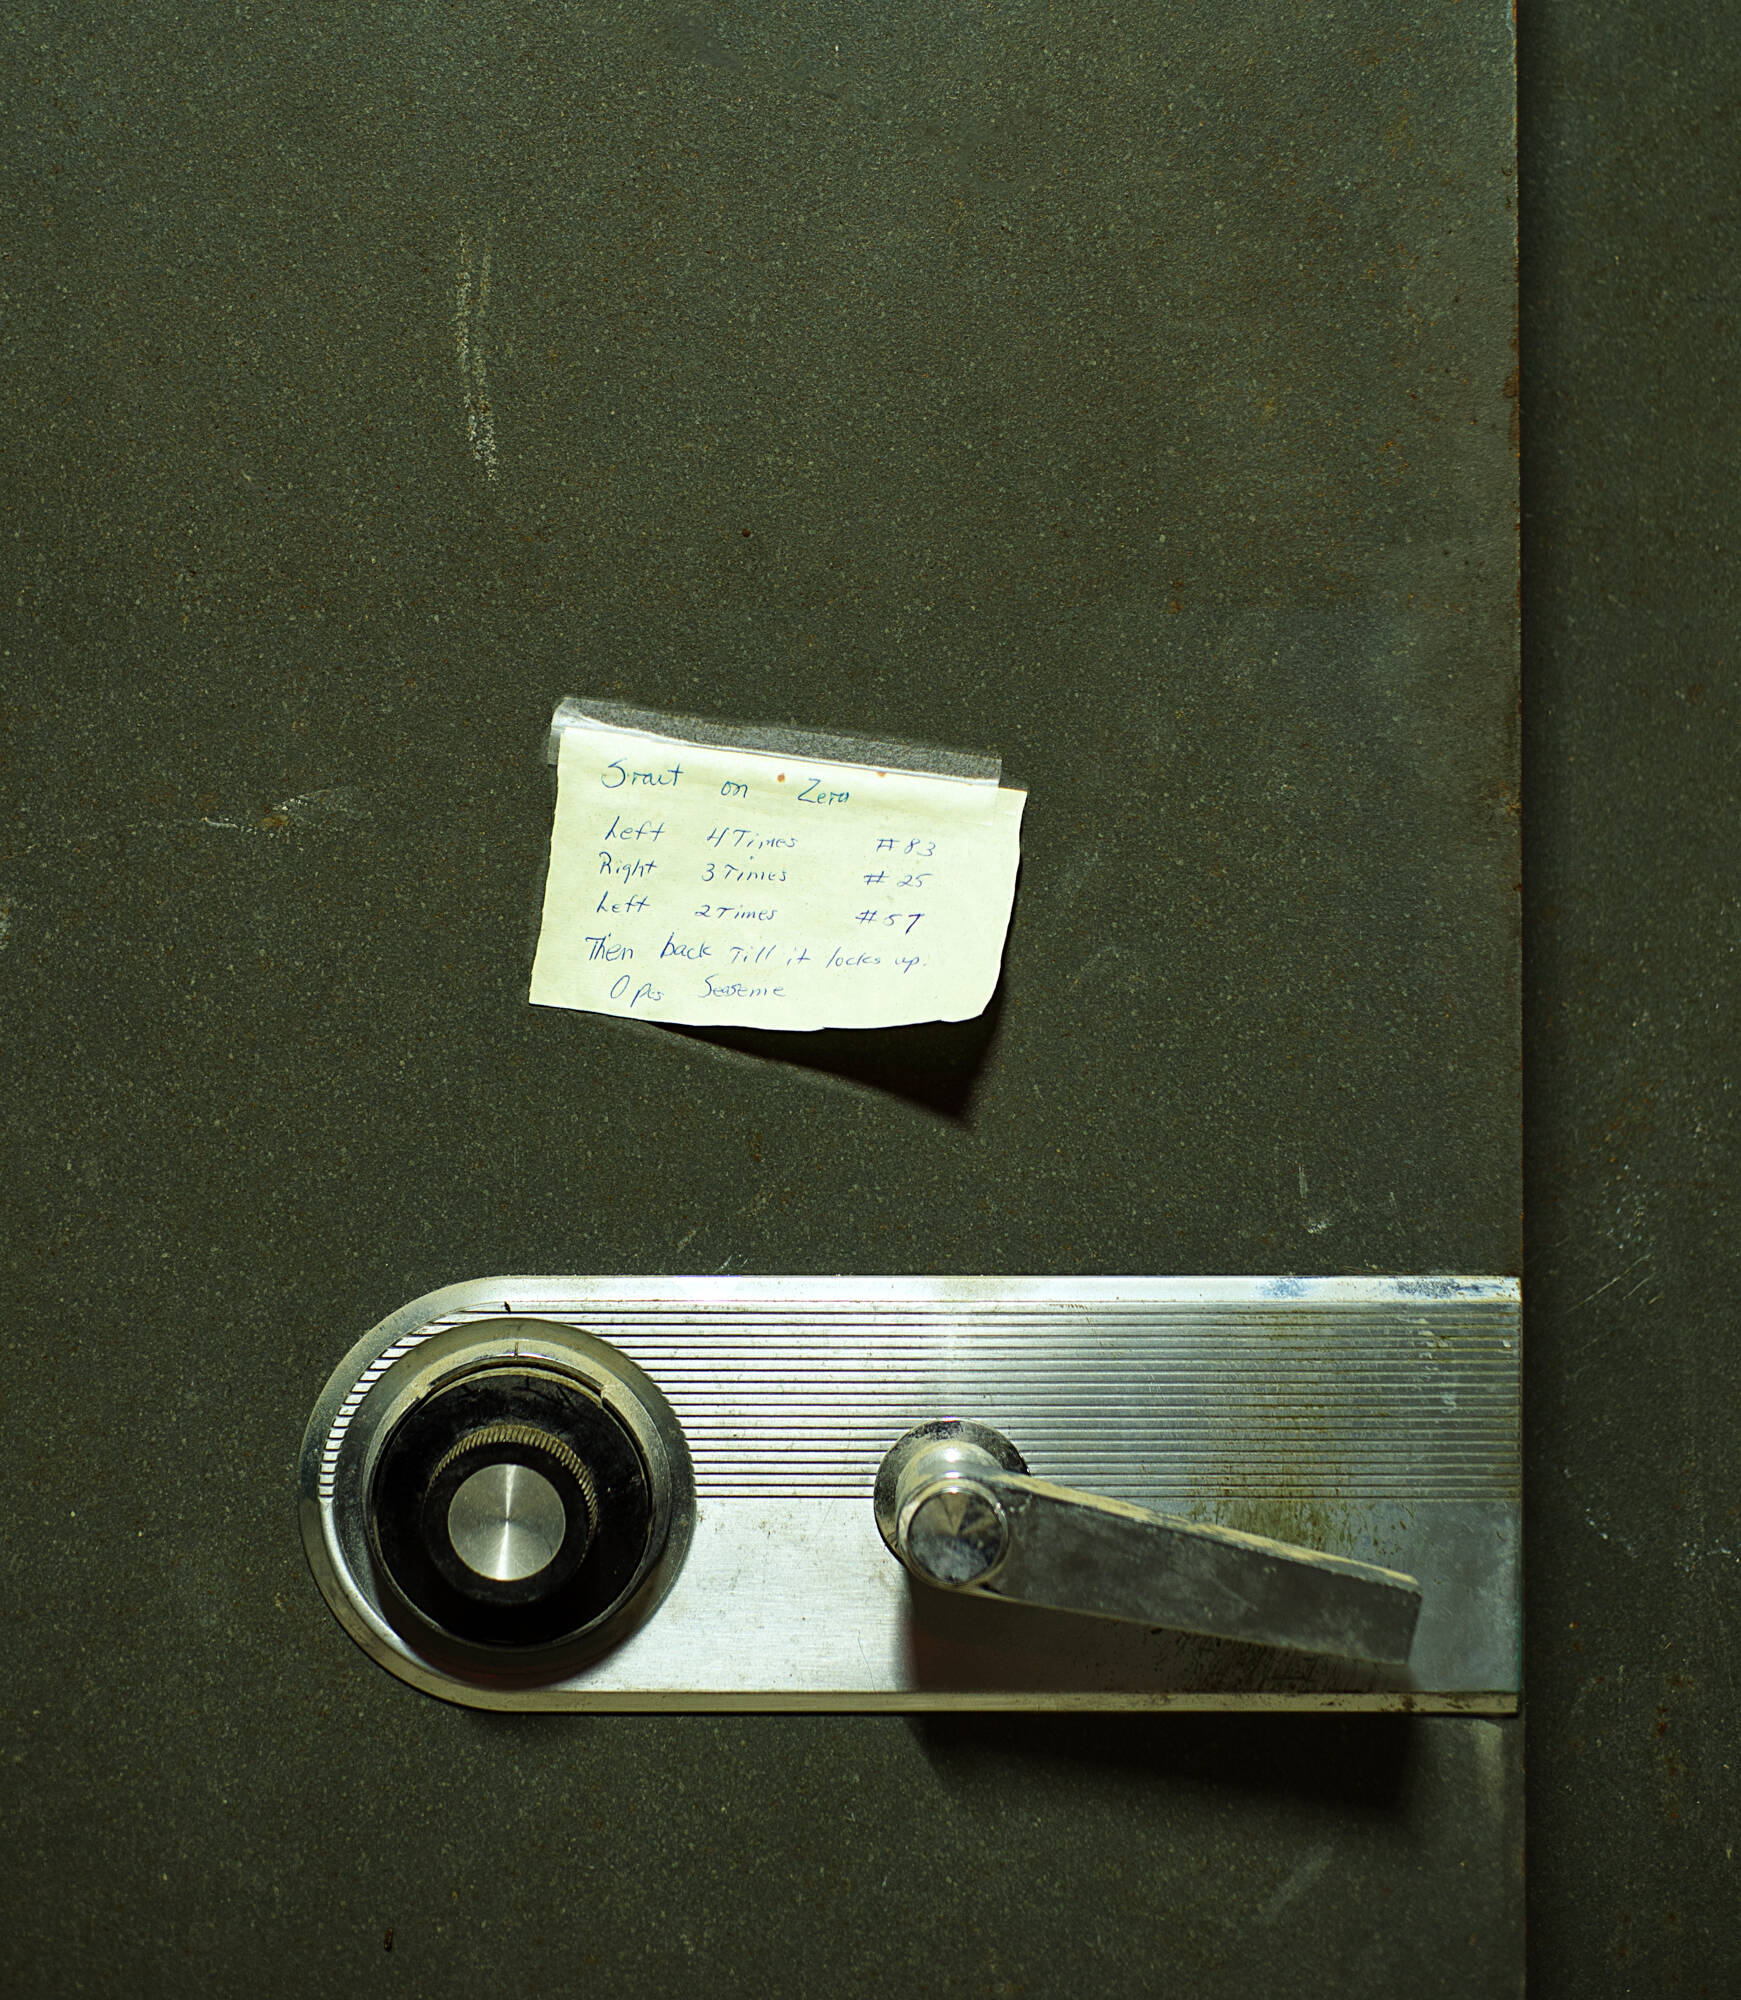 Sratt on Zero
Left 4 Times #83
Right 3 Times #25
Left 2 Times #57
Then back Till it locks up.
Open Seaseme